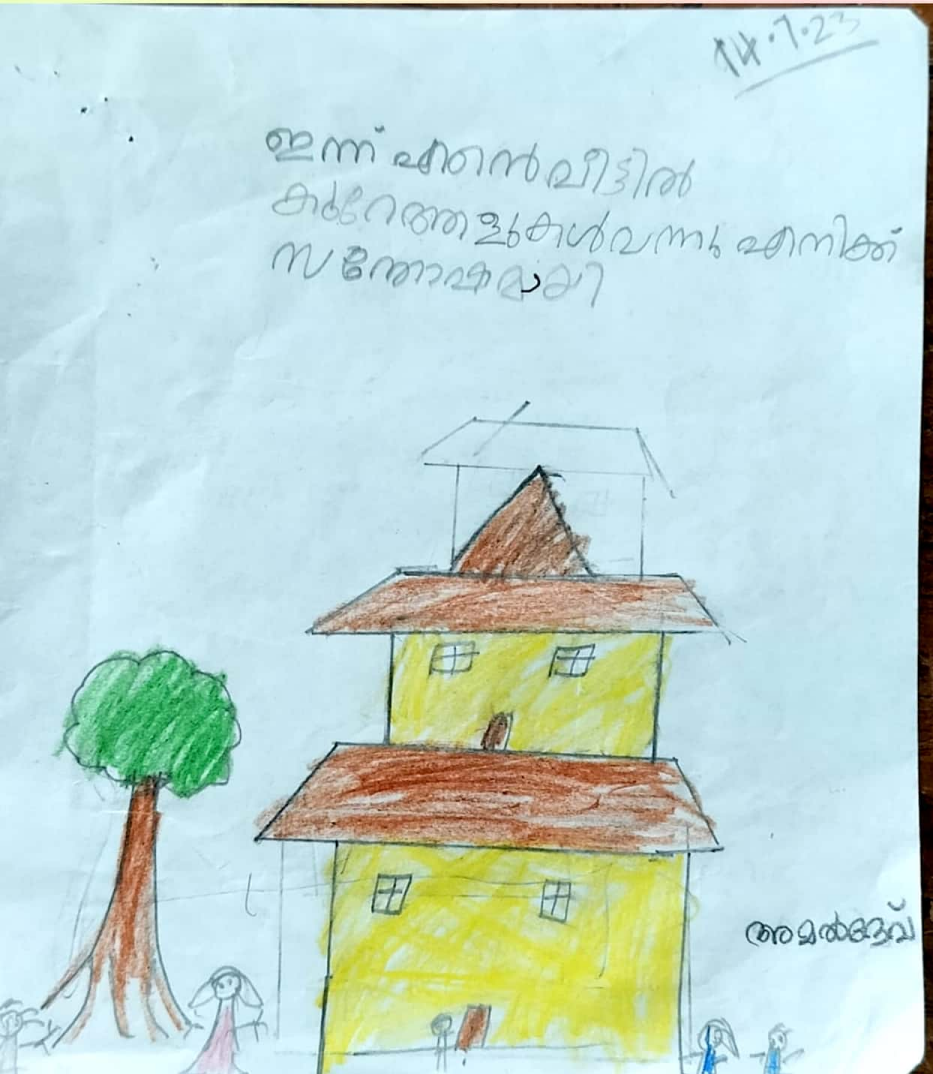 14.7.23
ഇന്ന് എൻെ വീട്ടിൽ
കുറേത്തളുകൾവന്നു എനിക്ക്
സന്തോഷമുയി
അമൽദേവ്